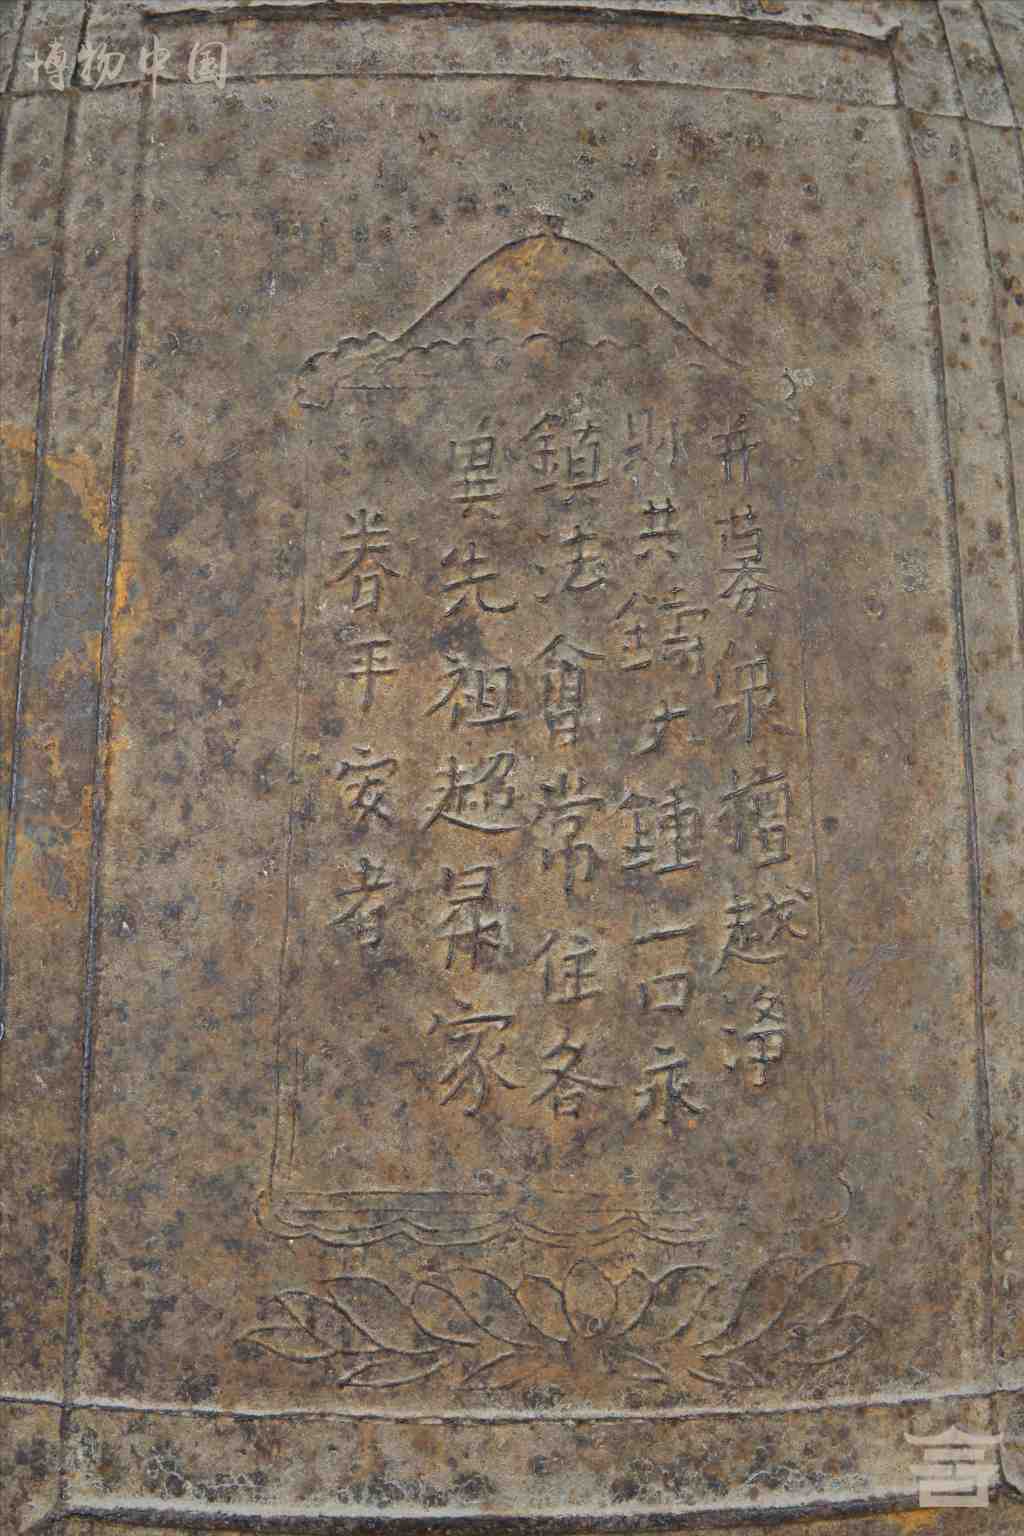 博物中国
并募眾檀越淨
財共鑄大鍾一口永
鎮法會常住各
兾先祖超昇家
眷平安者